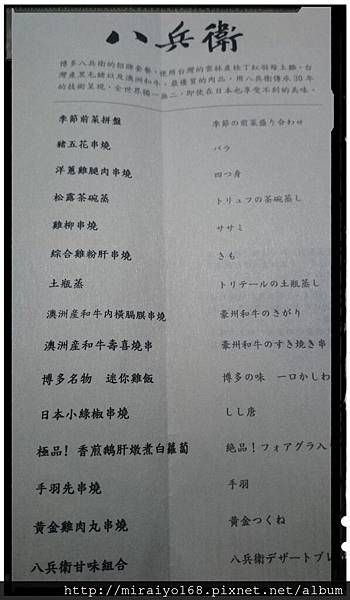 八兵衛
博多八兵衛的招牌套餐，使用台灣的雲林產桂丁紅羽母土雞、台
灣產黑毛豬以及澳洲和牛，最優質的肉品，用八兵衛傳承30年
的技術呈現，全世界獨一無二，即使在日本也享受不到的美味。
季節前菜拼盤 季節の前菜盛り合わせ
豬五花串燒 バラ
洋蔥雞腿肉串燒 四つ身
松露茶碗蒸 トリュフの茶碗蒸し
雞柳串燒 ササミ
綜合雞粉肝串燒 きも
土瓶蒸 トリテールの土瓶蒸し
澳洲産和牛內橫膈膜串燒 豪州和牛のさがり
澳洲産和牛壽喜燒串 豪州和牛のすき焼き串
博多名物 迷你雞飯 博多の味 一口かしわ
日本小綠椒串燒 しし唐
極品！香煎鵝肝燉煮白蘿蔔 絶品！フォアグラ入
手羽先串燒 手羽
黃金雞肉丸串燒 黄金つくね
八兵衛甘味組合 八兵衛デザートプレ
http://miraiyo168.pixnet.net/album